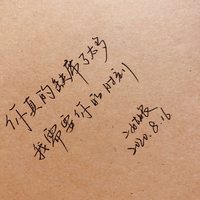 你真的缺席了太多
我需要你的时刻
2020.8.16